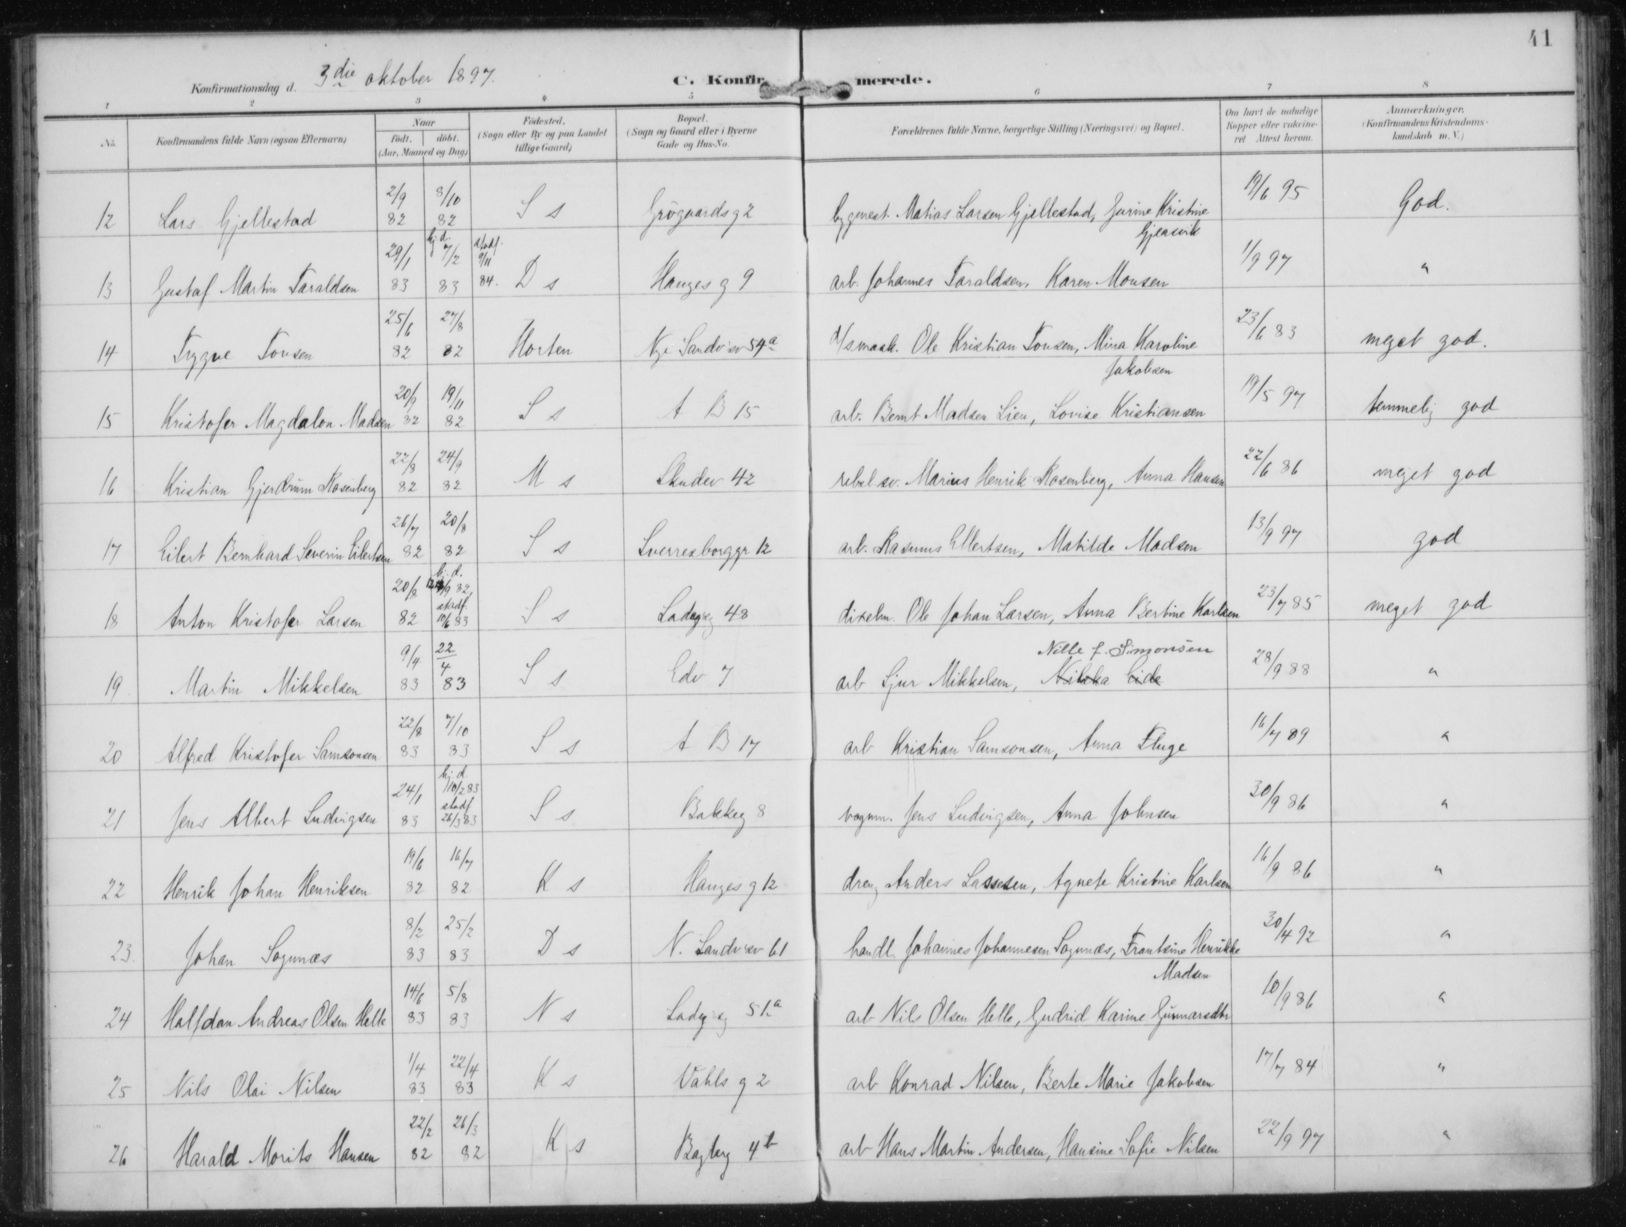 41
Konfirmationsdag d. 3die oktober 1897.
C. Konfirmerede.
1 2 3 4 5 6 7 8
No. Konfirmandens fulde Navn (ogsaa Efternavn) Naar født. døbt. (Aar, Maaned og Dag) Fødested. (Sogn eller By og paa Landet tillige Gaard) Bopæl. (Sogn og Gaard eller i Byerne Gade og Hus-No. Forældrenes fulde Navne, borgerlige Stilling (Næringsvei) og Bopæl. Om havt de naturlige Kopper eller vaccineret Attest herom. Anmærkninger. (Konfirmandens Kristendomskundskab m. V.)
12 Lars Gjellestad 2/9 82 8/10 82 S s Grøgaardsg 2 bygmest. Matias Larsen Gjellestad, Gurine Kristine Gjeravik 19/6 95 God.
13 Gustaf Martin Taraldsen 29/1 83 hj. d. 7/2 83 stadf. 9/11 84. D s Hauges g 9 arb. Johannes Taraldsen, Karen Monsen 1/9 97 "
14 Trygve Tonsen 25/6 82 27/8 82 Horten Nye Sandvsv 54a Ole Kristian Tonsen, Mina Karoline Jakobsen 23/6 83 meget god.
15 Kristofer Magdalon Madsen 20/9 82 19/11 82 S s A B 15 arb. Bernt Madsen Lien, Lovise Kristiansen 19/5 97 temmelig god
16 Kristian Gjerdrum Rosenberg 22/8 82 24/9 82 M s Skudev 42 Marius Henrik Rosenberg, Anna Hansen 22/6 86 meget god
17 Eilert Bernhard Severin Eilertsen 26/7 82 20/8 82 S s Sverresborggr 12 arb. Rasmus Ellertsen, Matilde Madsen 13/9 97 god
18 Anton Kristofer Larsen 20/8 82 hj. d. 82, stadf. 10/6 83 S s Ladeg 48 Ole Johan Larsen, Anna Bertine Karlsen 23/7 85 meget god
19 Martin Mikkelsen 9/4 83 22/4 83 S s Edv 7 arb Sjur Mikkelsen, Nille f. Simonsen 28/9 88 "
20 Alfred Kristofer Samsonsen 22/8 83 7/10 83 S s A B 17 arb Kristian Samsonsen, Anna Fluge 16/7 89 "
21 Jens Albert Ludvigsen 24/1 83 hj. d 10/2 83 stadf 26/3 83 S s Bakkeg 8 vognm. Jens Ludvigsen, Anna Johnsen 30/9 86 "
22 Henrik Johan Henriksen 19/6 82 16/7 82 K s Hauges g 12 dreng Anders Lassesen, Agnete Kristine Karlsen 16/9 86 "
23. Johan Sognnæs 8/2 83 25/2 83 D s N. Sandvsv 61 handl. Johannes Johannesen Sognnæs, Frantsine Henrikke Madsen 30/4 92 "
24 Halfdan Andreas Olsen Helle 14/6 83 5/8 83 N s Ladeg 51a arb Nils Olsen Helle, Gudrid Karine Gunnarsdtr 10/9 86 "
25 Nils Olai Nilsen 1/4 83 22/4 83 K s Vahls g 2 arb Konrad Nilsen, Berte Marie Jakobsen 17/7 84 "
26 Harald Morits Hansen 22/2 82 26/3 82 K s 4b arb Hans Martin Andersen, Hansine Sofie Nilsen 22/9 97 "